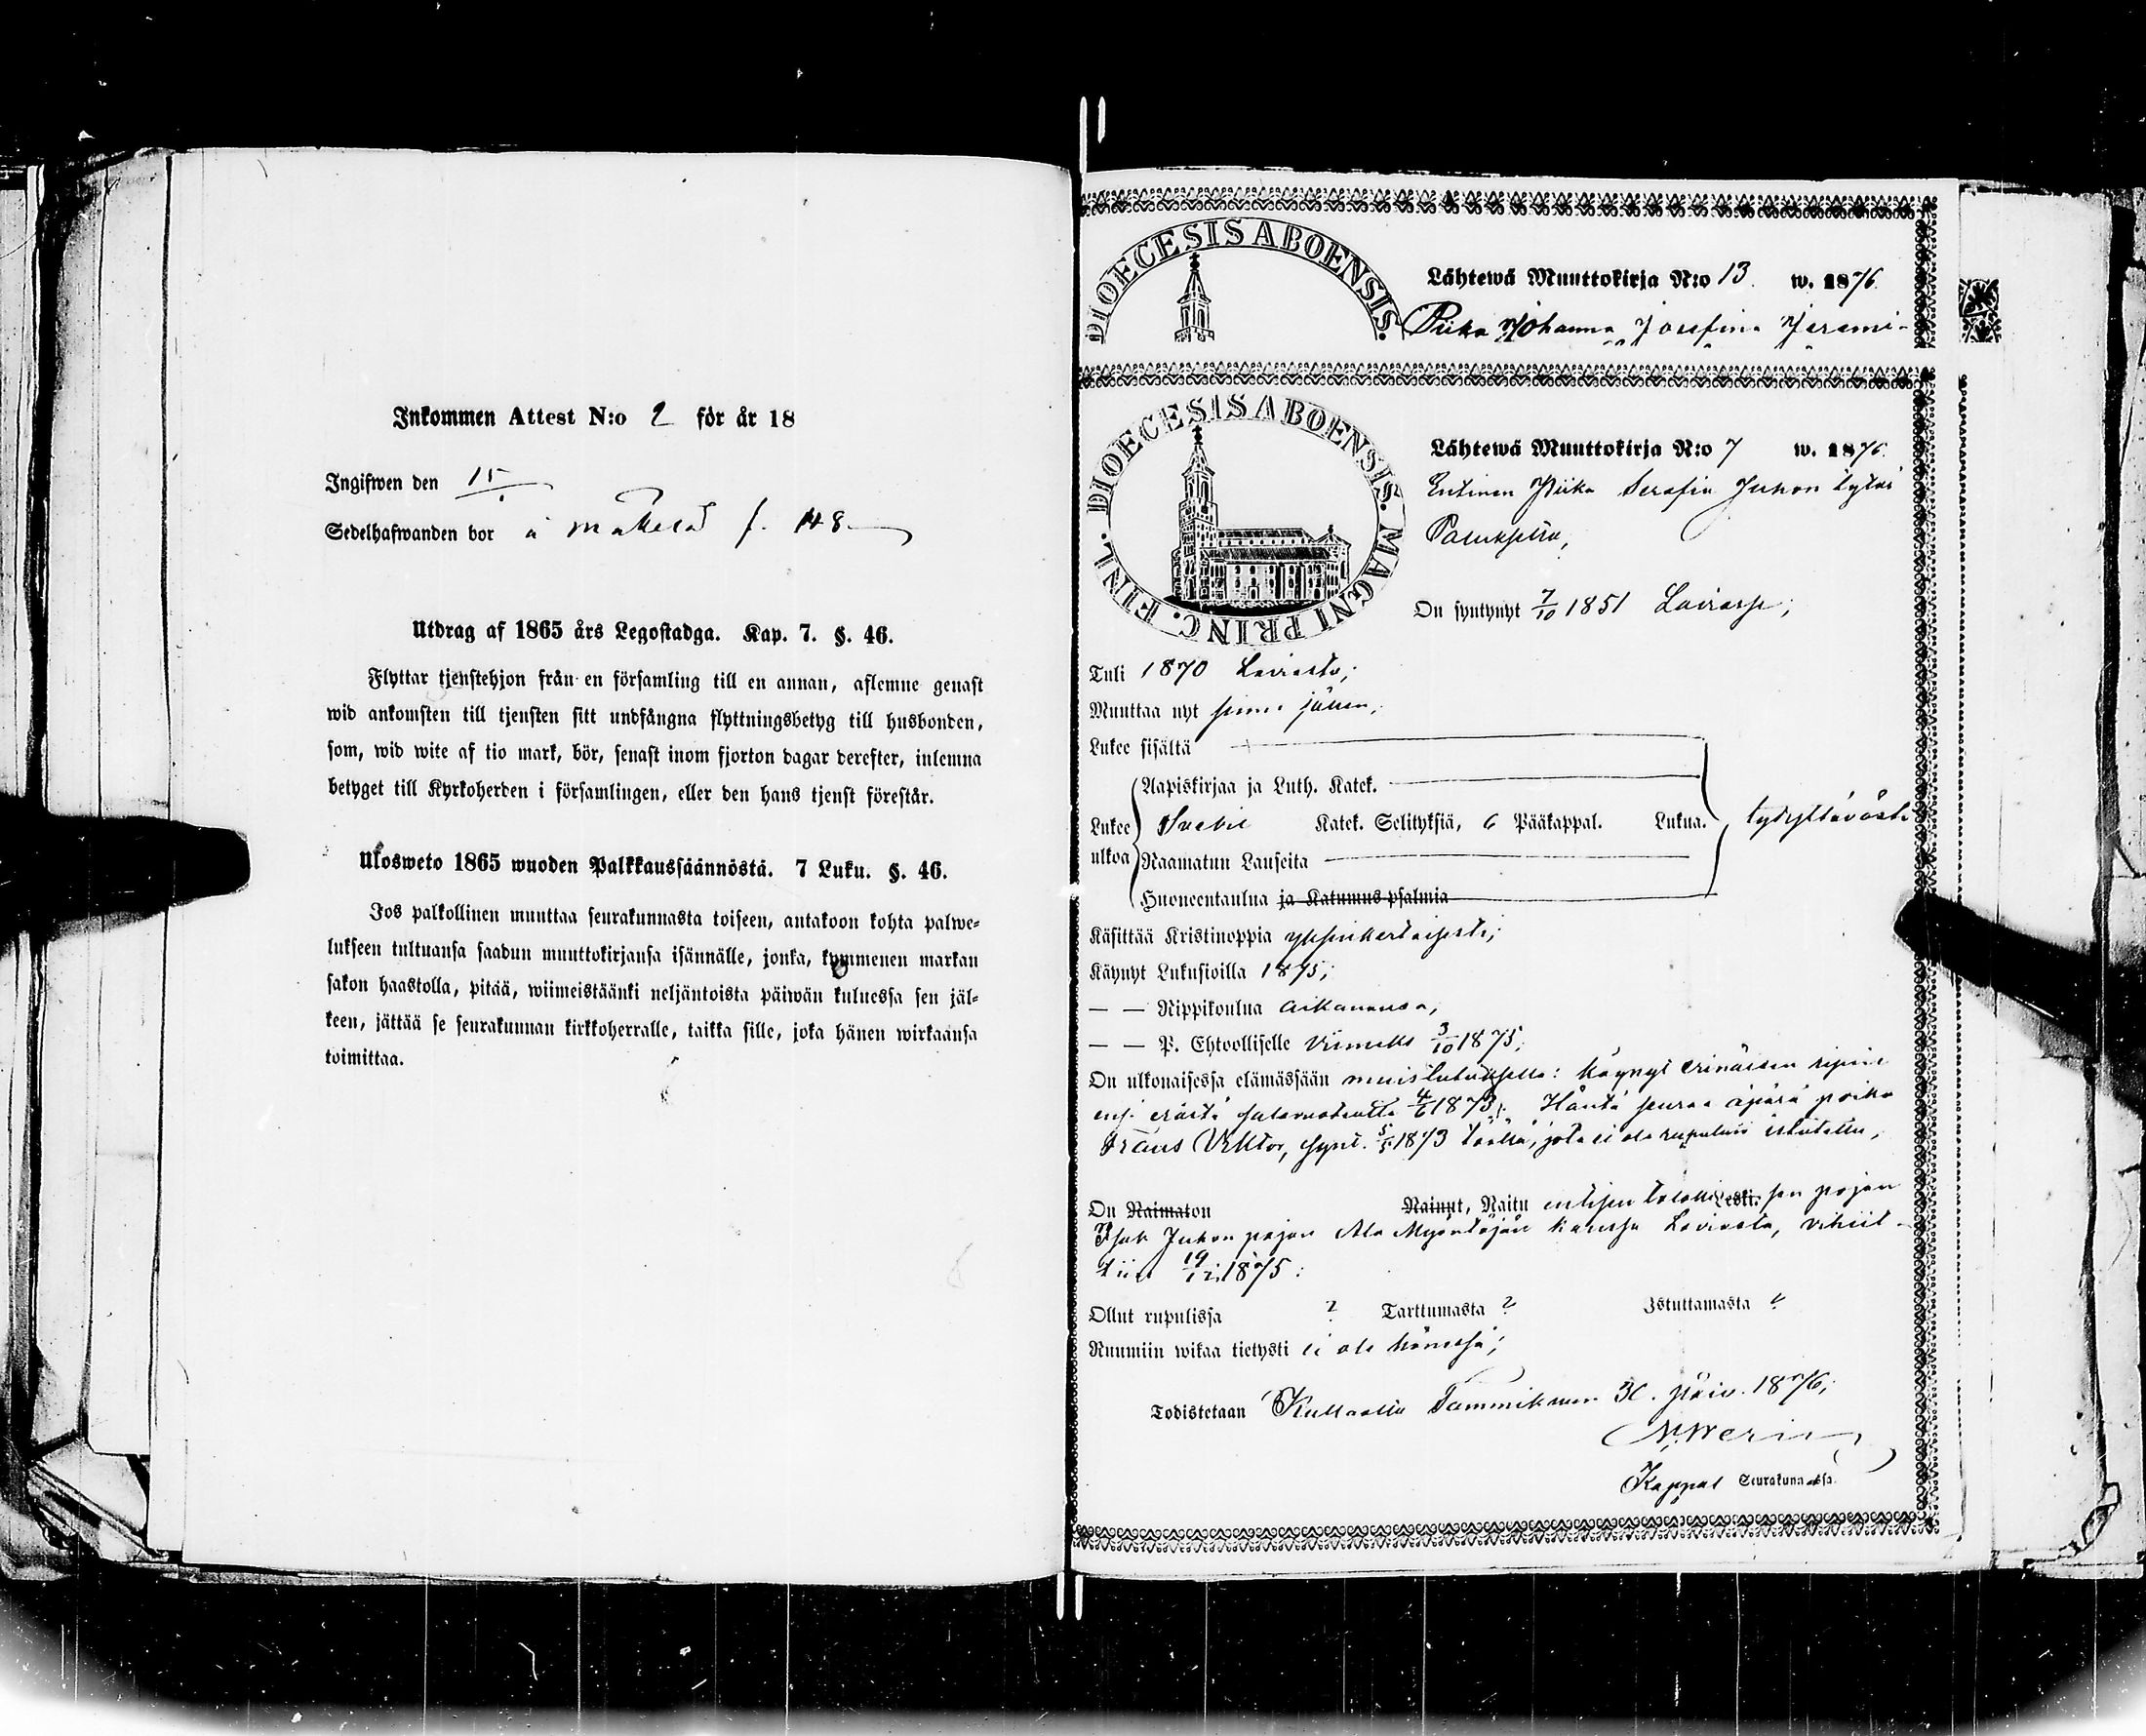 Inkommen Attest N:o 2 för år 18
Ingifwen den 15
Sedelhafwanden bor å f. 148
Utdrag af 1865 års Legostadga. Kap. 7. §. 46.
Flyttar tjenstehjon från en församling till en annan, aflemne genast
wid ankomsten till tjensten sitt undfångna flyttningsbetyg till husbonden,
som, wid wite af tio mark, bör, senast inom fjorton dagar derefter, inlemna
betyget till Kyrkoherden i församlingen, eller den hans tjenst förestår.
Ulosweto 1865 wuoden Palkkaussäännöstä. 7 Luku. §. 46.
Jos palkollinen muuttaa seurakunnasta toiseen, antakoon kohta palwe-
lukseen tultuansa saadun muuttokirjansa isännälle, jonka, kymmenen markan
sakon haastolla, pitää, wiimeistäänki neljäntoista päiwän kuluessa sen jäl-
keen, jättää se seurakunnan kirkkoherralle, taikka sille, joka hänen wirkaansa
toimittaa.
DIOECESIS ABOENSIS.
Lähtewä Muuttokirja N:o 13. w. 1876.
Piika Johanna Josefina Jeremi-
DIOECESIS ABOENSIS. MAGNI PRINC. FINL.
Lähtewä Muuttokirja N:o 7 w. 1876.
Entinen Piika Serafia Juhon tytär
On syntynyt 7/10 1851 Laviassa;
Tuli 1870 Laviasta;
Muuttaa nyt sinne jälleen;
Lukee sisältä
Aapiskirjaa ja Luth. Katek.
Lukee ulkoa Svebil Katek. Selityksiä, 6 Pääkappal. Lukua. tydyttävästi
Raamatun Lauseita
Huoneentaulua ja Katumus-psalmia
Käsittää Kristinoppia yksinkertaisesti;
Käynyt Lukusioilla 1875;
— — Rippikoulua aikanansa,
— — P. Ehtoolliselle viimeksi 3/10 1875;
On ulkonaisessa elämässään muistutuksella: käynyt erinäisen ripin
salavuoteutta 4/6 1873; Häntä seuraa äpärä poika
Frans Viktor, synt. 5/5 1873 täällä, jota ei ole rupuliin istutettu,
On Naimaton Nainut, Naitu entisen Leski. pojan
Isak Juhon pojan Ala Myöntäjän kanssa Laviasta, vihit-
tiin 19/12 1875:
Ollut rupulissa ? Tarttumasta ? Istuttamasta
Ruumiin wikaa tietysti ei ole hänessä;
Todistetaan Kullaalla Tammikuun 30. päiv. 1876;
Kappal Seurakunnassa.